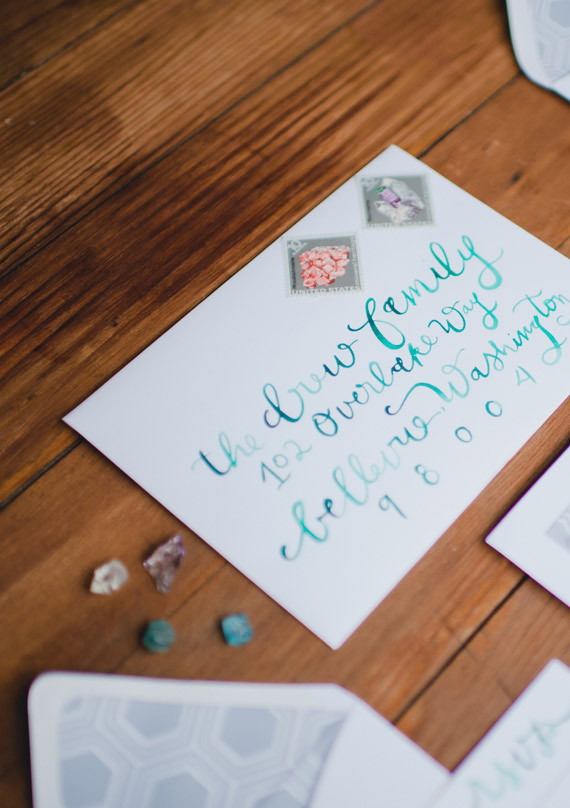 UNITED STATES
the drew family
102 overlake Way
bellevue, Washington
98004
rsvp